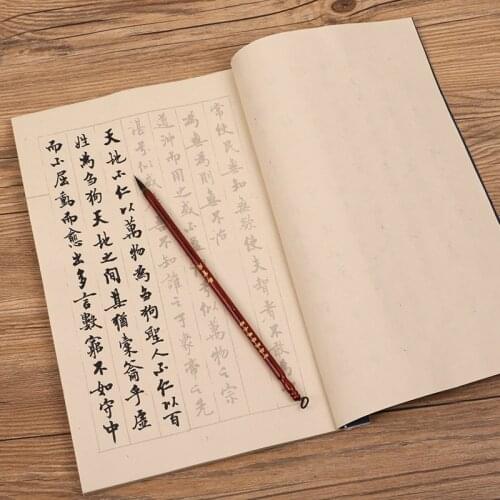 常使民無知無欲使夫智者不敢為
為無為則無不治
道沖而用之或不盈兮似萬物之宗
湛兮似或不知誰之子象帝之先
天地不仁以萬物為芻狗聖人不仁以百
姓為芻狗天地之間其猶橐籥乎虛
而不屈動而愈出多言數窮不如守中